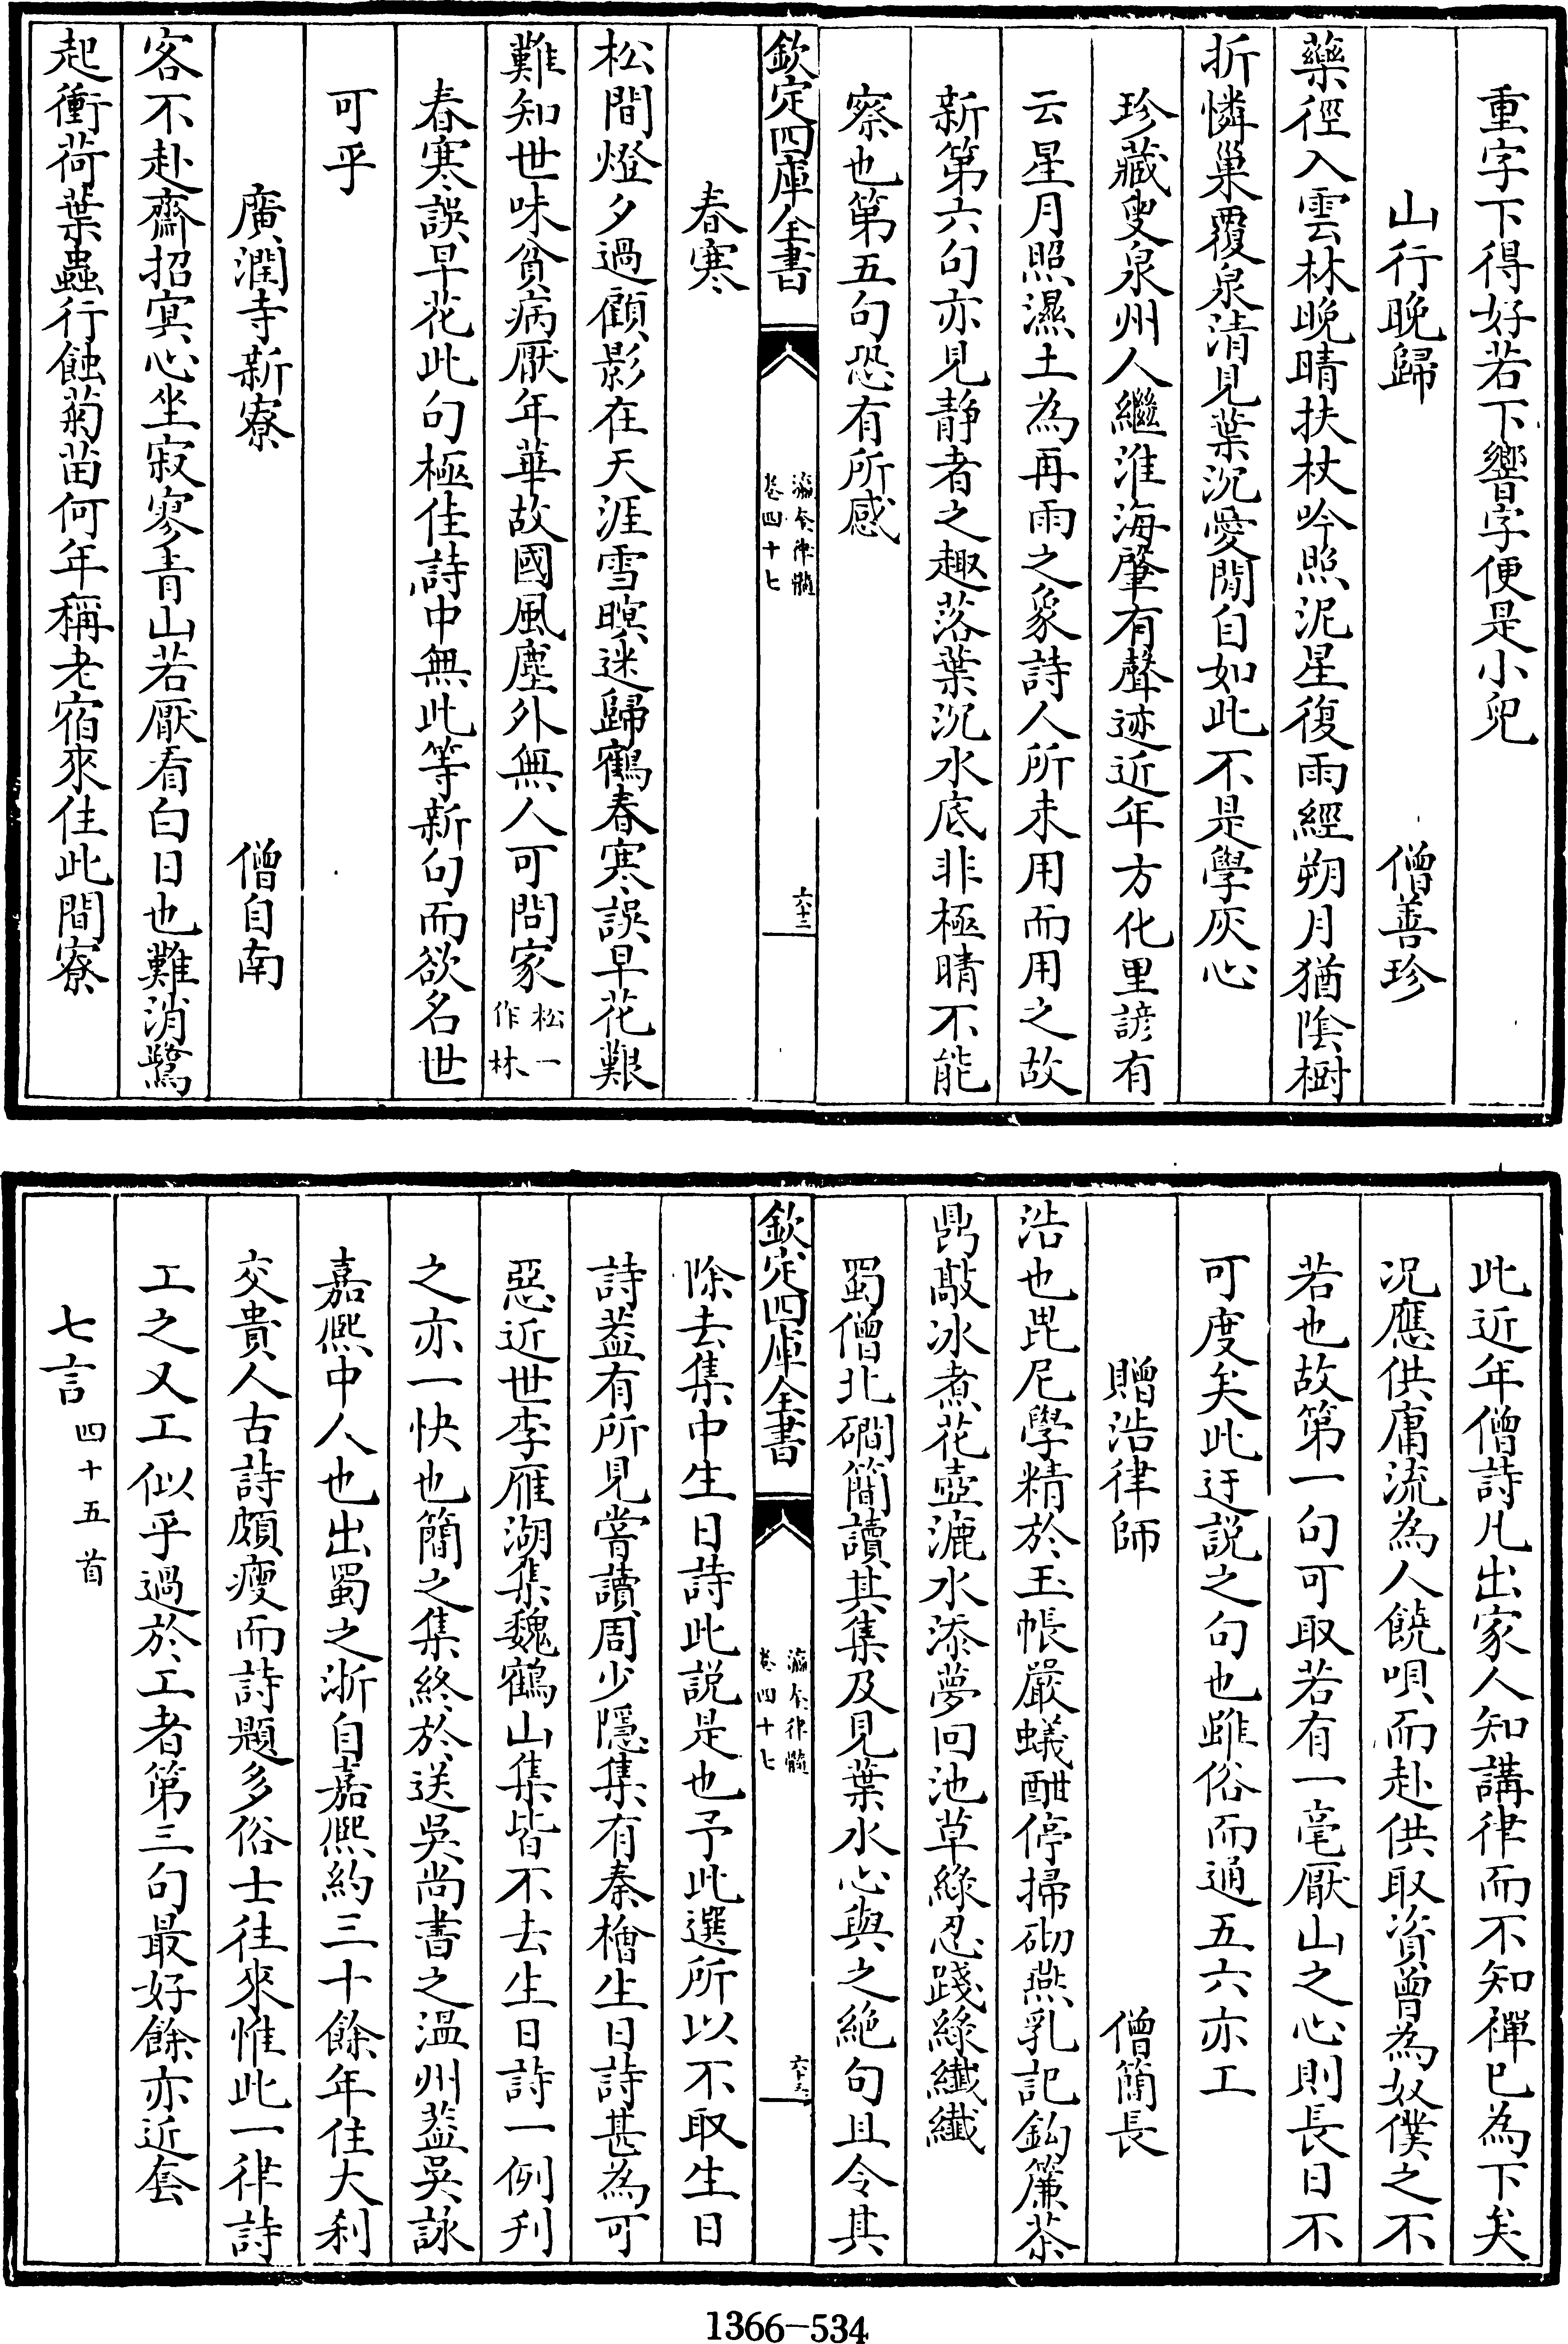 重字下得好若下響字便是小兒
山行晚歸　僧善珍
藥徑入雲林晚晴扶杖吟照泥星復雨經朔月猶隂樹
折憐巢覆泉清見葉沉愛閒自如此不是學灰心
珍藏叟泉州人繼淮海肇有聲迹近年方化里諺有
云星月照濕土為再雨之象詩人所未用而用之故
新第六句亦見靜者之趣落葉沉水底非極晴不能
察也第五句恐有所感
欽定四庫全書　瀛奎律髓　卷四十七　六十二
春寒
松間燈夕過顧影在天涯雪暝迷歸鶴春寒誤早花艱
難知世味貧病厭年華故國風塵外無人可問家松一作林
春寒誤早花此句極佳詩中無此等新句而欲名世
可乎
廣潤寺新寮　僧自南
客不赴齋招㝠心坐寂寥青山若厭看白日也難消鷺
起衝荷葉蟲行蝕菊苗何年稱老宿來住此間寮
此近年僧詩凡出家人知講律而不知禪已為下矣
况應供庸流為人饒唄而赴供取資曾為奴僕之不
若也故第一句可取若有一毫厭山之心則長日不
可度矣此迂説之句也雖俗而通五六亦工
贈浩律師　僧簡長
浩也毘尼學精於玉帳嚴蟻酣停掃砌燕乳記鈎簾茶
鼎敲冰煮花壺漉水添夢回池草緑忍踐緑纖纖
蜀僧北磵簡讀其集及見葉水心與之絶句且令其
欽定四庫全書　瀛奎律髓　卷四十七　六十三
除去集中生日詩此説是也予此選所以不取生日
詩葢有所見嘗讀周少隱集有秦檜生日詩甚為可
惡近世李雁湖集魏鶴山集皆不去生日詩一例刋
之亦一快也簡之集終於送吳尚書之温州葢吳詠
嘉熙中人也出蜀之浙自嘉熙約三十餘年住大刹
交貴人古詩頗瘦而詩題多俗士往來惟此一律詩
工之又工似乎過於工者第三句最好餘亦近套
七言四十五首
1366-534